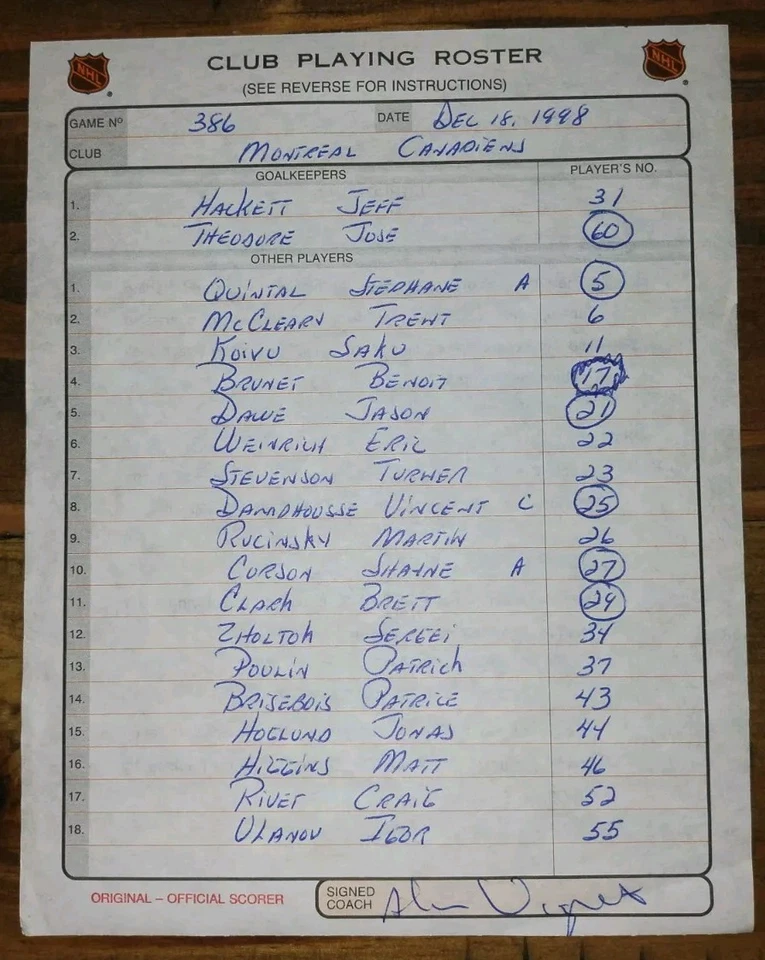 NHL CLUB PLAYING ROSTER NHL
(SEE REVERSE FOR INSTRUCTIONS)
GAME Nº 386 DATE DEC 18, 1998
CLUB MONTREAL CANADIENS
GOALKEEPERS PLAYER'S NO.
1. HACKETT JEFF 31
2. THEODORE JOSE 60
OTHER PLAYERS
1. QUINTAL STEPHANE A 5
2. MCCLEARY TRENT 6
3. KOIVU SAKU 11
4. BRUNET BENOIT 17
5. DAWE JASON 21
6. WEINRICH ERIC 22
7. STEVENSON TURNER 23
8. DAMPHOUSSE VINCENT C 25
9. RUCINSKY MARTIN 26
10. CORSON SHAYNE A 27
11. CLARK BRETT 29
12. ZHOLTOK SERGEI 34
13. POULIN PATRICK 37
14. BRISEBOIS PATRICE 43
15. HOGLUND JONAS 44
16. HIGGINS MATT 46
17. RIVET CRAIG 52
18. ULANOV IGOR 55
ORIGINAL – OFFICIAL SCORER SIGNED COACH